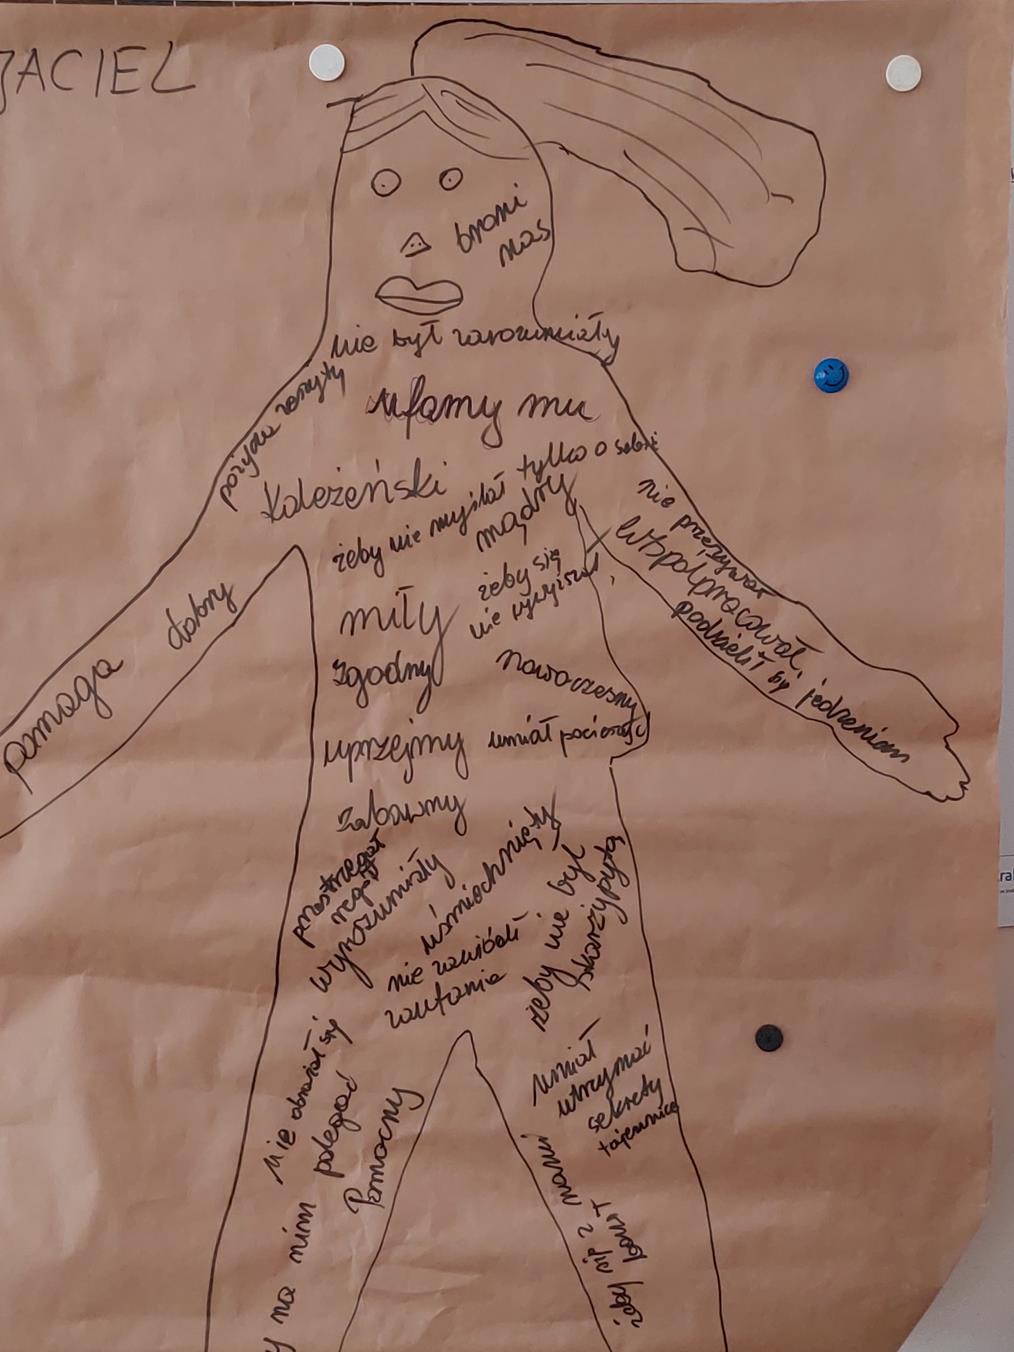 JACIEL
broni
nas
nie był zarozumiały
pożycza zeszyty
ufamy mu
Koleżeński
żeby nie myślał tylko o sobie
mądry
żeby się
nie wywyższał,
nie przezywał
Współpracował,
podzielił by jedzeniem
dobry
pomaga
miły
Zgodny
nowoczesny
uprzejmy
umiał pocieszyć
Zabawny
przestrzegał
reguł
wyrozumiały
uśmiechnięty
nie zawiódł
zaufania
żeby nie był
skarżypytą
nie obrażał się
y na nim polegać
Pomocny
umiał
utrzymać
sekrety
tajemnice
żeby się z nami
bawił